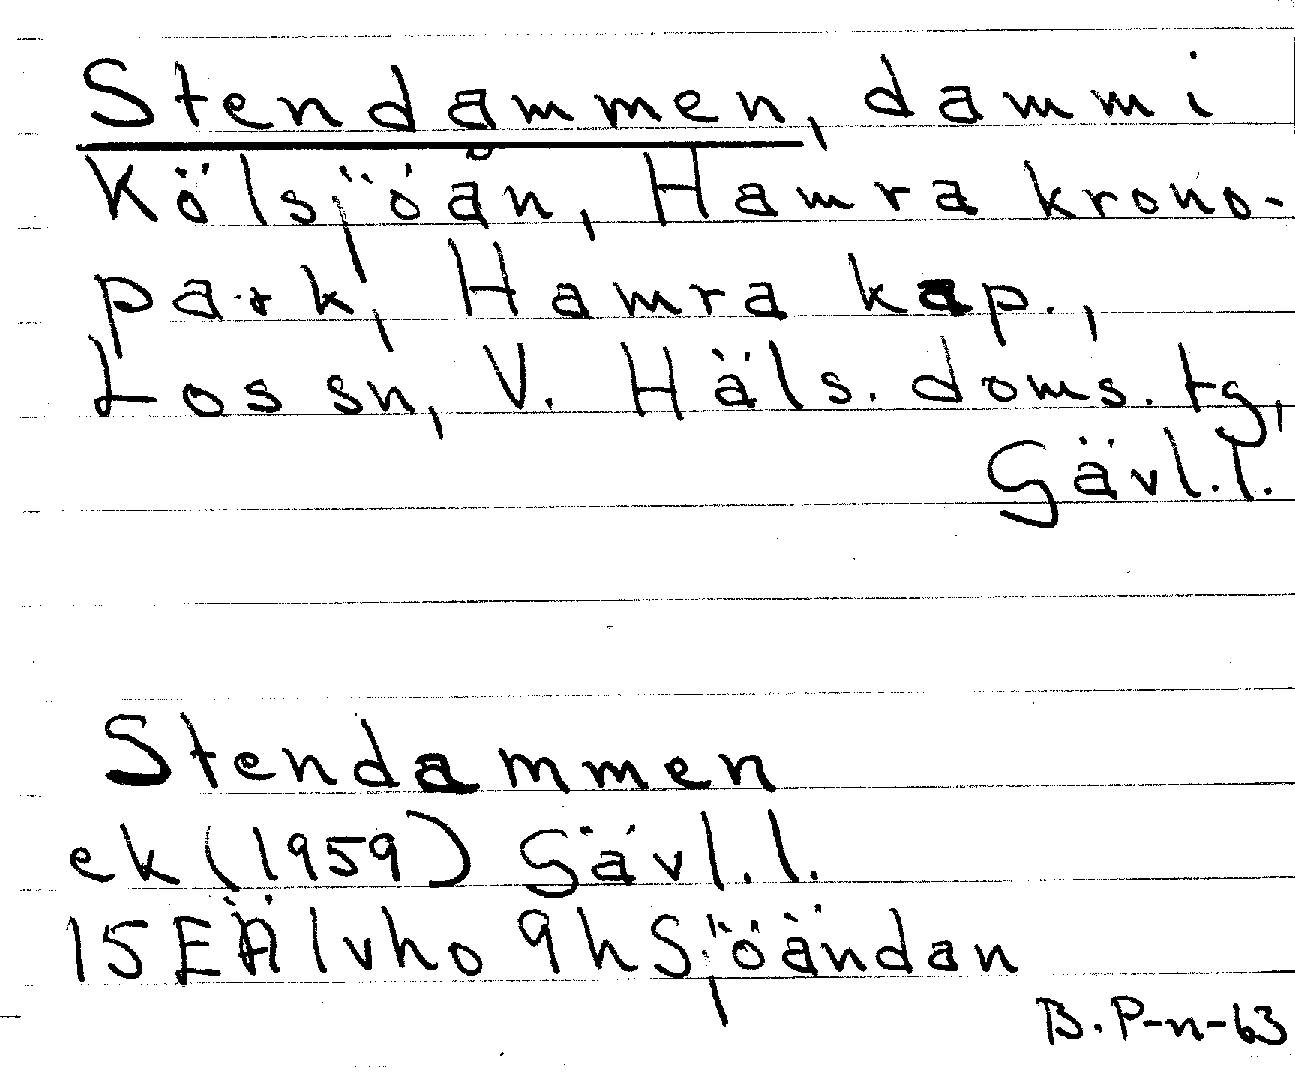 Stendammen, damm i
Kölsjöån, Hamra krono-
park, Hamra kap.,
Los sn, V. Häls. doms. tg,
Gävl.l.
Stendammen
ek (1959) Gävl.l.
15EÄlvho 9h Sjöändan
B. P-n-63